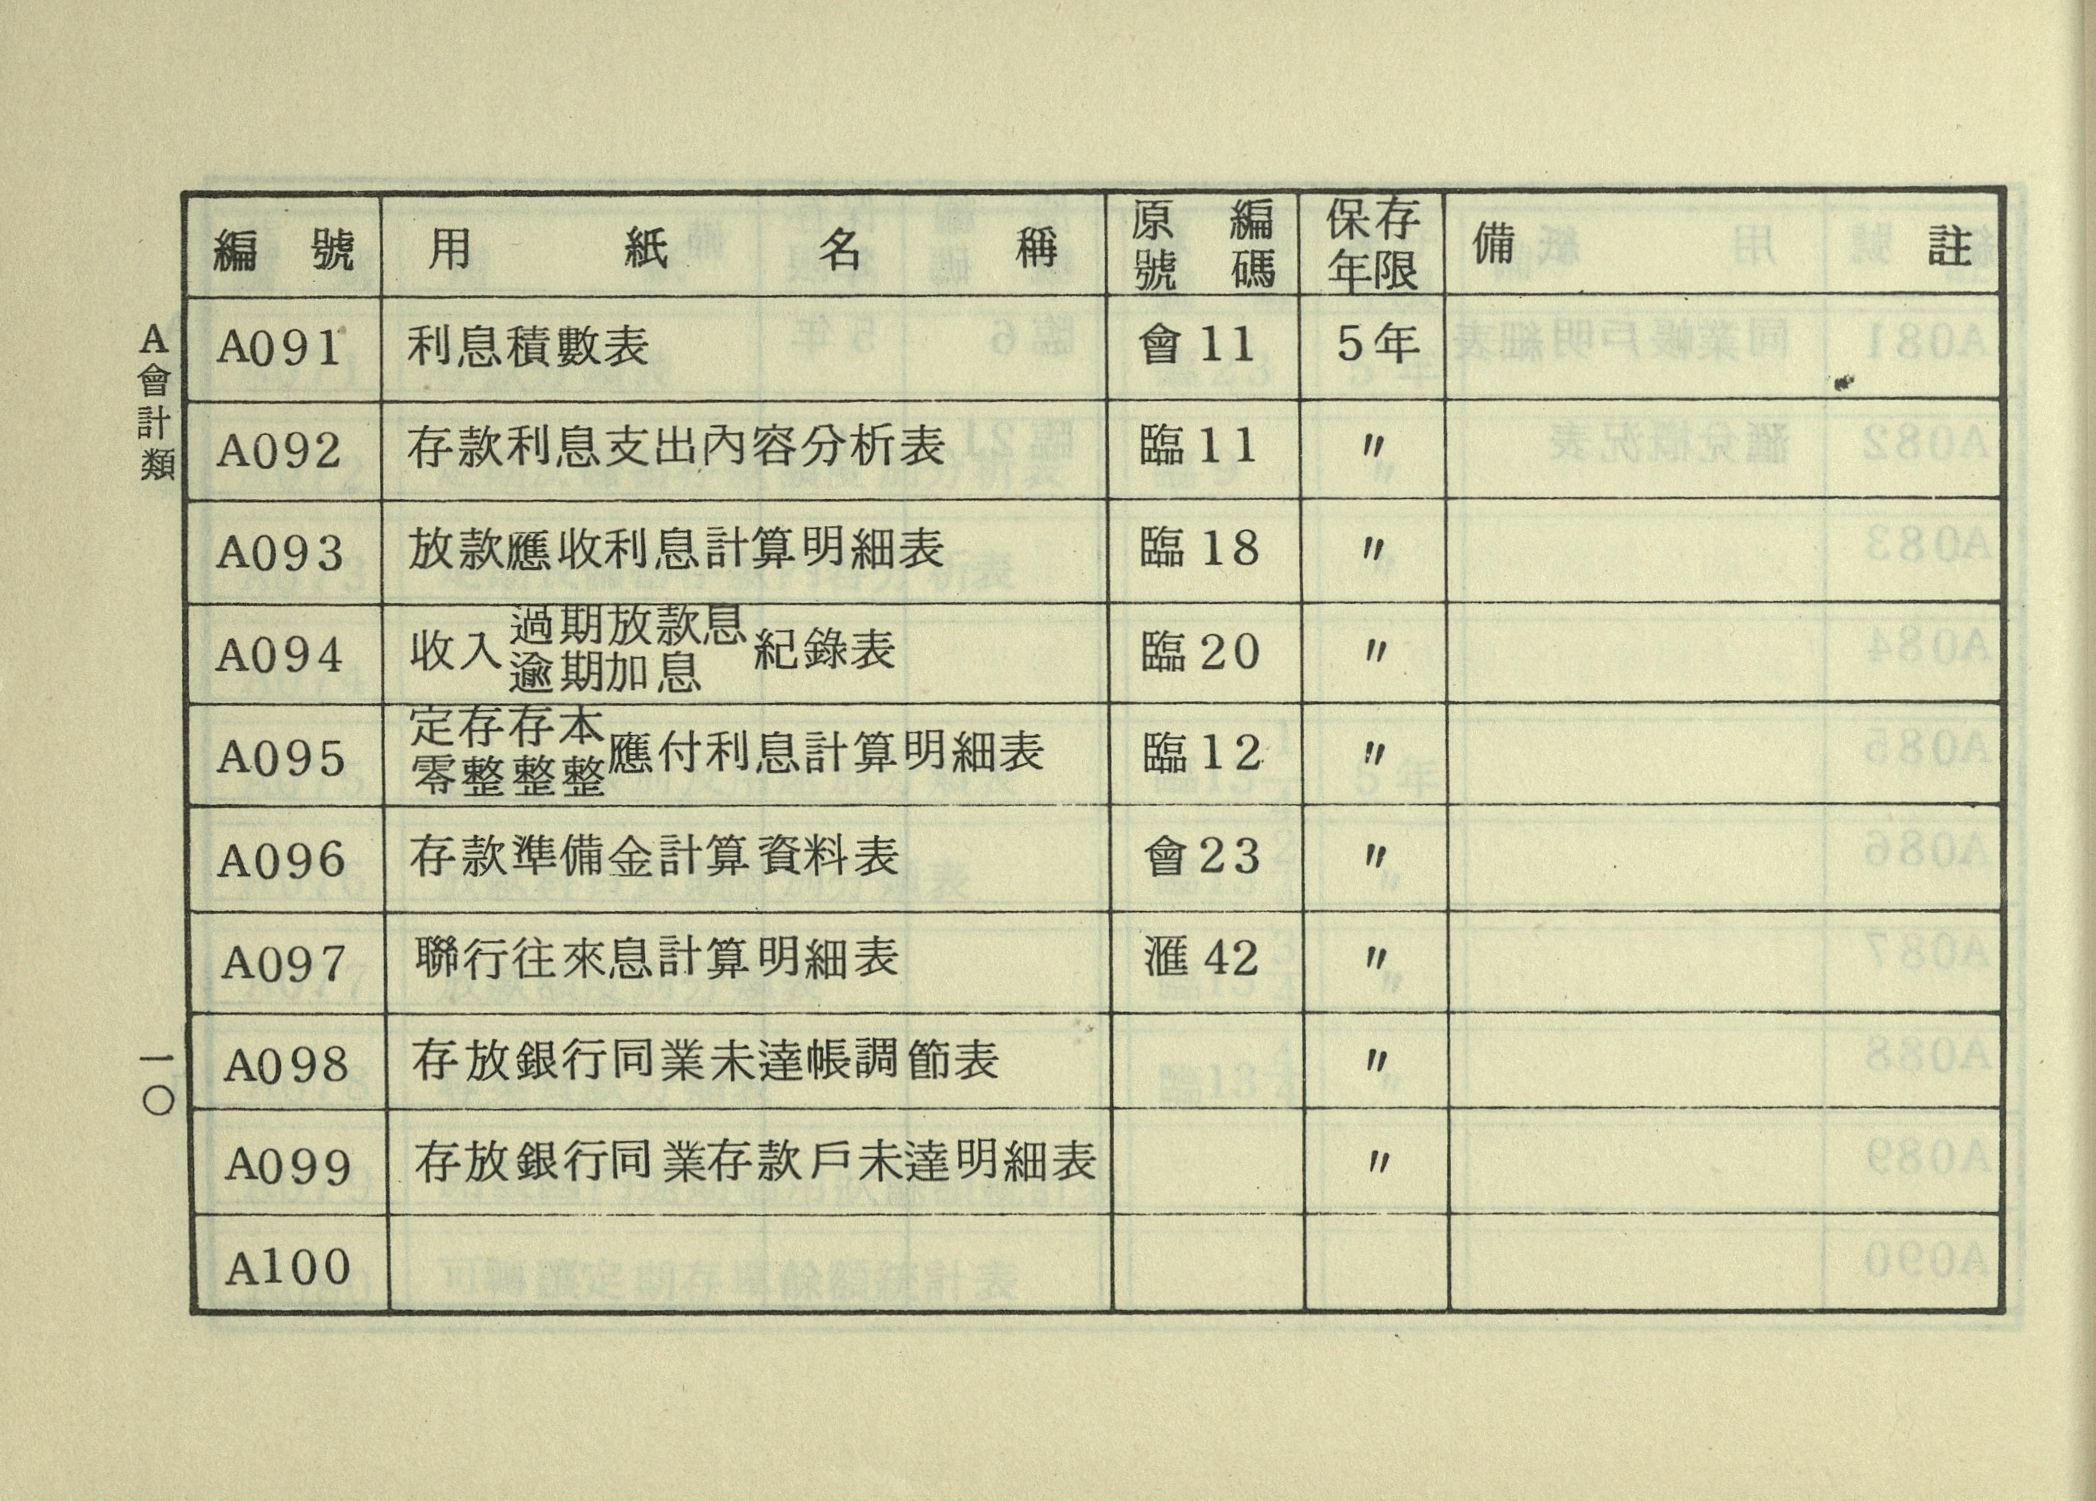 編號 用紙名稱 原編號碼 保存年限 備註
A091 利息積數表 會11 5年
A092 存款利息支出內容分析表 臨11 〃
A093 放款應收利息計算明細表 臨18 〃
A094 收入過期放款息逾期加息紀錄表 臨20 〃
A095 定存存本零整整整應付利息計算明細表 臨12 〃
A096 存款準備金計算資料表 會23 〃
A097 聯行往來息計算明細表 滙42 〃
A098 存放銀行同業未達帳調節表 〃
A099 存放銀行同業存款戶未達明細表 〃
A100
A會計類
一〇